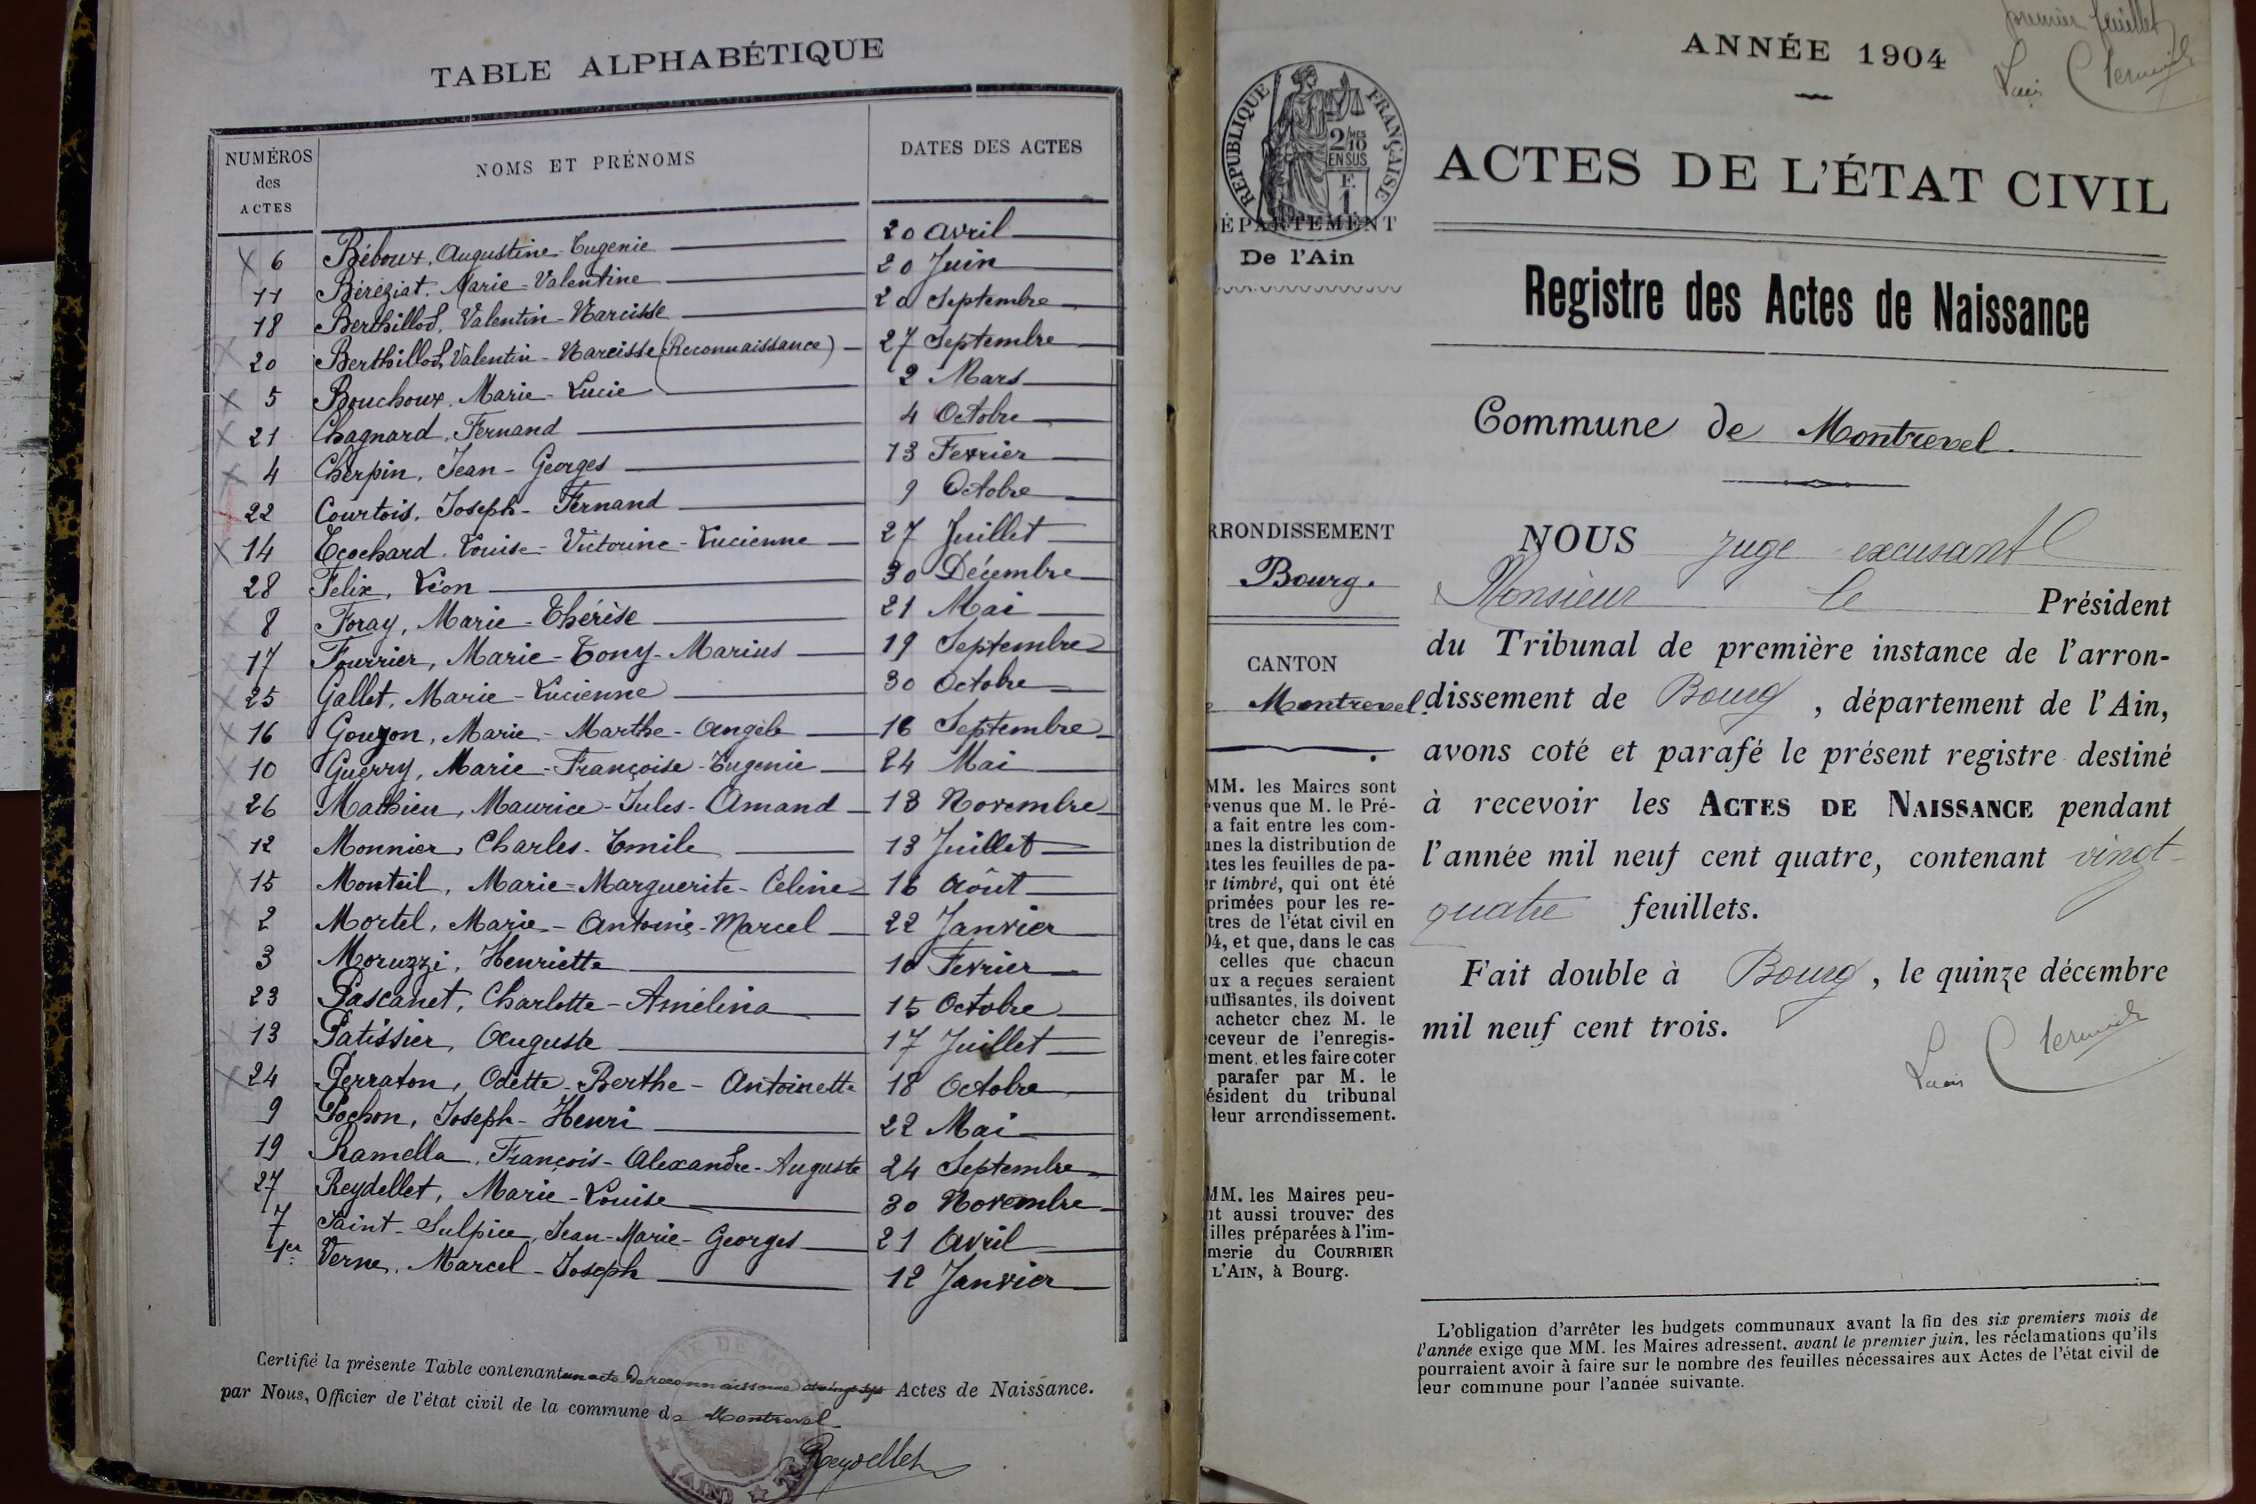 TABLE ALPHABÉTIQUE
NUMÉROS des ACTES NOMS ET PRÉNOMS DATES DES ACTES
6 Béboux, Augustine-Eugenie 20 avril
11 Béréziat, Marie-Valentine 20 Juin
18 Berthillod, Valentin-Narcisse 20 Septembre
20 Berthillod, Valentin-Narcisse (Reconnaissance) 27 Septembre
5 Bouchoux, Marie-Lucie 2 Mars
21 Chagnard, Fernand 4 Octobre
4 Cherpin, Jean-Georges 13 Fevrier
22 Courtois, Joseph-Fernand 9 Octobre
14 Ecochard, Louise-Victorine-Lucienne 27 Juillet
28 Felix, Léon 30 Décembre
8 Foray, Marie-Thérèse 21 Mai
17 Fourrier, Marie-Tony-Marius 19 Septembre
25 Gallet, Marie-Lucienne 30 Octobre
16 Gouyon, Marie-Marthe-Angèle 16 Septembre
10 Guerry, Marie-Françoise-Eugenie 24 Mai
26 Mathieu, Maurice-Jules-Amand 13 Novembre
12 Monnier, Charles-Emile 13 Juillet
15 Monteil, Marie-Marguerite-Céline 16 Août
2 Mortel, Marie-Antoine-Marcel 22 Janvier
3 Moruzzi, Henriette 10 Fevrier
23 Pascanet, Charlotte-Amélina 15 Octobre
13 Patissier, Auguste 17 Juillet
24 Perraton, Odette-Berthe-Antoinette 18 Octobre
9 Pochon, Joseph-Henri 22 Mai
19 Ramella, François-Alexandre-Auguste 24 Septembre
27 Reydellet, Marie-Louise 30 Novembre
7 Saint-Sulpice, Jean-Marie-Georges 21 Avril
1er Verne, Marcel-Joseph 12 Janvier
Certifié la présente Table contenant un acte de reconnaissance et vingt sept Actes de Naissance.
par Nous, Officier de l'état civil de la commune de Montrevel
Reydellet
premier feuillet
ANNÉE 1904
RÉPUBLIQUE FRANÇAISE
2/10 EN SUS
F. 1
ACTES DE L'ÉTAT CIVIL
ÉPARTEMENT
De l'Ain
Registre des Actes de Naissance
Commune de Montrevel.
RRONDISSEMENT
Bourg.
CANTON
Montrevel.
MM. les Maires sont
evenus que M. le Pré-
a fait entre les com-
unes la distribution de
utes les feuilles de pa-
r timbré, qui ont été
primées pour les re-
tres de l'état civil en
04, et que, dans le cas
celles que chacun
ux a reçues seraient
uffisantes, ils doivent
acheter chez M. le
ceveur de l'enregis-
ment, et les faire coter
parafer par M. le
ésident du tribunal
leur arrondissement.
MM. les Maires peu-
nt aussi trouver des
illes préparées à l'im-
merie du COURRIER
L'AIN, à Bourg.
NOUS juge excusant
Monsieur le Président
du Tribunal de première instance de l'arron-
dissement de Bourg, département de l'Ain,
avons coté et parafé le présent registre destiné
à recevoir les ACTES DE NAISSANCE pendant
l'année mil neuf cent quatre, contenant vingt-
quatre feuillets.
Fait double à Bourg, le quinze décembre
mil neuf cent trois.
L'obligation d'arrêter les budgets communaux avant la fin des six premiers mois de
l'année exige que MM. les Maires adressent, avant le premier juin, les réclamations qu'ils
pourraient avoir à faire sur le nombre des feuilles nécessaires aux Actes de l'état civil de
leur commune pour l'année suivante.